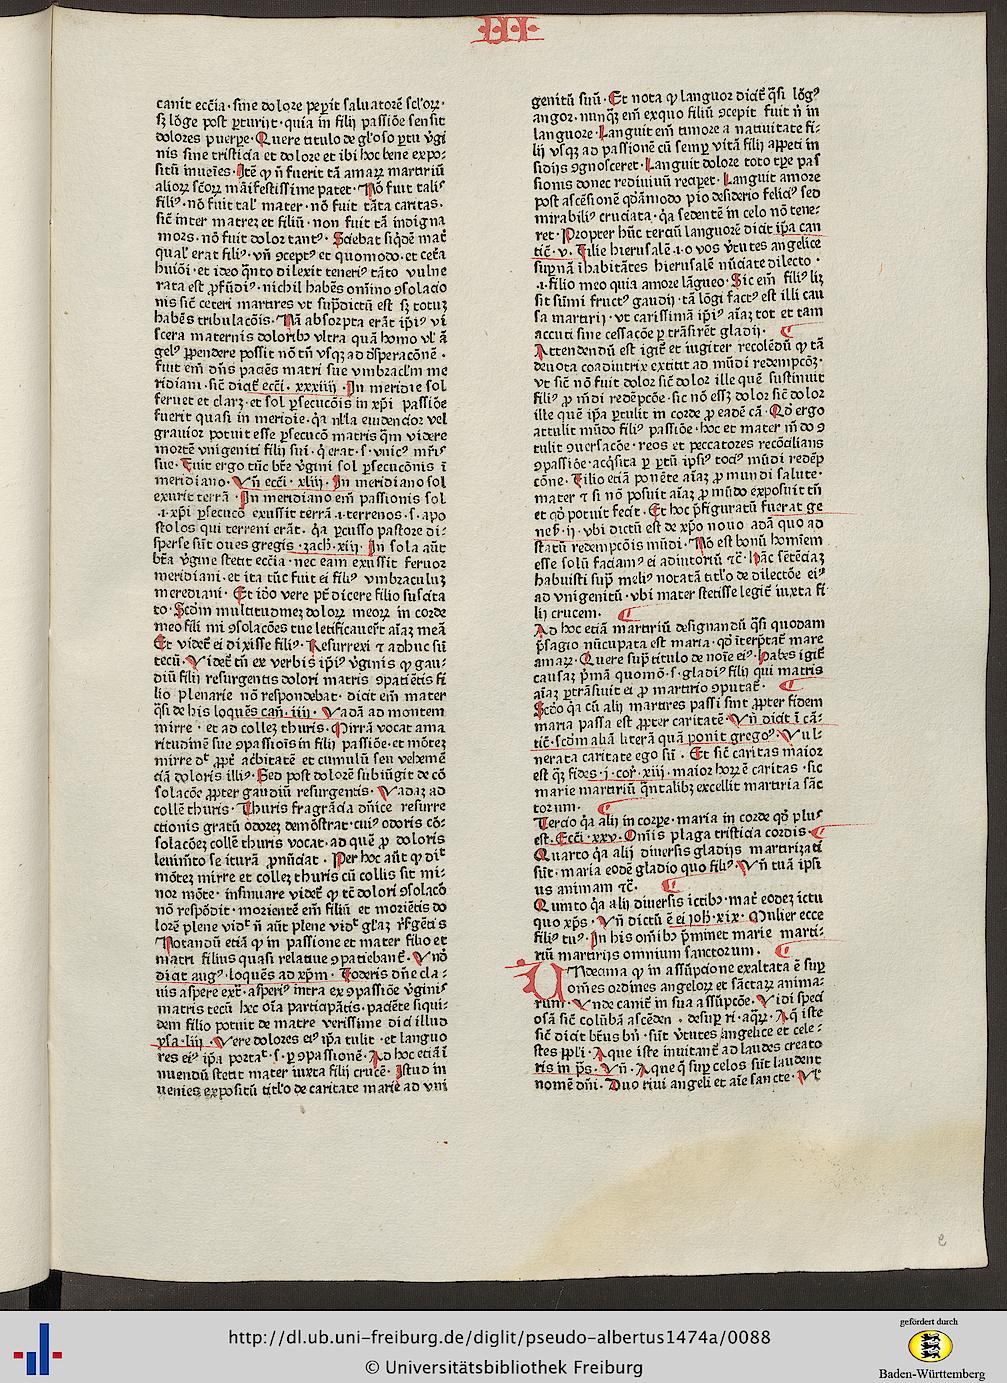 III
canit ecc̄ia · sine dolore pep̱it saluatorē sc̄l'oꝝ ·
sꝫ lōge post ꝑturijt · quia in filij passiōe sensit
dolores puerpe · Quere titulo de gl'oso ꝑtu v̓gi
nis sine tristicia et dolore et ibi hoc bene expo-
situ inueīes · Itē ꝙ n̄ fuerit tā amaꝝ martiriū
alioꝝ sc̄oꝝ māifestissime patet · Nō fuit talis
filiꝰ · nō fuit tal' mater · nō fuit tāta caritas ·
sic̄ inter matreꝫ et filiū · non fuit tā indigna
mors · nō fuit dolor tantꝰ · Sciebat siq̄dē mat̓
qual' erat filiꝰ · vn̄ ꝯceptꝰ et quomodo · et cet̓a
huiōi · et ideo q̄nto dilexit teneriꝰ tāto vulne
rata est ꝓfūdiꝰ · nichil habēs om̄ino ꝯsolacio
nis sic̄ ceteri martires vt sup̱dictū est sꝫ totuꝫ
habēs tribulacōis · Nā absorpta erāt ip̄iꝰ vi
scera maternis doloribꝫ vltra quā homo vl' ā
gelꝰ ꝑpendere possit nō tn̄ vsqꝫ ad d̓speracōnē ·
fuit em̄ dn̄s paciēs matri sue vmbracl'm me
ridiani · sic̄ dicit̓ ecc̄i · xxxiiij · In meridie sol
feruet et clarꝫ · et sol ꝑsecucōis in xp̄i passiōe
fuerit quasi in meridie · q̓a nl'la euidencior vel
grauior potuit esse ꝑsecucō matris q̄m videre
mortē vnigeniti filij sui · q̓ erat · s · vnicꝰ mr̄is
sue · Fuit ergo tūc bt̄e v̓gini sol ꝑsecucōnis ī
meridiano · Vn̄ ecc̄i · xliij · In meridiano sol
exurit terrā · In meridiano em̄ passionis sol
· i · xp̄i ꝑsecucō exussit terrā · i · terrenos · s · apo
stolos qui terreni erāt · q̓a ꝑcusso pastore di-
sperse sūt oues gregis · zach · xiij · In sola aūt
bt̄a v̓gine stetit ecc̄ia · nec eam exussit feruor
meridiani · et ita tūc fuit ei filiꝰ vmbraculuꝫ
merediani · Et ido vere pt̄ dicere filio suscita
to · Scd̄m multitudineꝫ doloꝝ meoꝝ in corde
meo fili mi ꝯsolacōes tue letificauer̄t aīaꝫ meā
Et videt̓ ei dixisse filiꝰ · Resurrexi ⁊ adhuc sū
tecū · Videt̓ tn̄ ex verbis ip̄iꝰ v̓ginis ꝙ gau-
diū filij resurgentis dolori matris ꝯpatiētis fi
lio plenarie nō respondebat · dicit em̄ mater
q̄si de his loquēs can̄ · iiij · Vadā ad montem
mirre · et ad colleꝫ thuris · Mirrā vocat ama
ritudinē sue ꝯpassiois in filij passiōe · et mōteꝫ
mirre dt̓ ꝓpt̓ ac̓bitatē et cumulū seu vehemē
ciā doloris illiꝰ · Sed post dolorē subiūgit de cō
solacōe ꝓpter gaudiū resurgentis · Vadaꝫ ad
collē thuris · Thuris fragrācia dn̄ice resurre
ctionis gratū odoreꝫ demōstrat · cuiꝰ odoris cō-
solacōeꝫ collē thuris vocat · ad quē ꝓ doloris
leuimēto se iturā ꝓnūciat · Per hoc aūt ꝙ dit̓
mōteꝫ mirre et colleꝫ thuris cū collis sit mi-
nor mōte · insinuare videt̓ ꝙ tē dolori ꝯsolacō
nō respōdit · morientē em̄ filiū et moriētis do
lorē plene vidt̓ n̄ aūt plene vidt̓ gl'aꝫ r̓sg̓ētis
Notandū etiā ꝙ in passione et mater filio et
matri filius quasi relatiue ꝯpatiebant̓ · Vnō
dicit augꝰ · loquēs ad xp̄m · Foderis dn̄e cla-
uis aspere ext̓ · asperiꝰ intra ex ꝯpassiōe v̓ginis
matris tecū hec oīa participātis · paciēte siqui-
dem filio potuit de matre verissime dici illud
ysa · liij · Vere dolores eiꝰ ip̄a tulit · et languo
res eiꝰ ip̄a portat̓ · s · ꝑ ꝯpassionē · Ad hoc etiā ī
nuendū stetit mater iuxta filij crucē · Istud in
uenies expositū titl'o de caritate marie ad vni
genitū suū · Et nota ꝙ languor dicit̓ q̄si lōgꝰ
angor · nunq̄ꝫ em̄ exquo filiū ꝯcepit fuit n̄ in
languore · Languit em̄ timore a natiuitate fi-
lij vsqꝫ ad passionē cū semꝑ vitā filij appeti in
sidijs ꝯgnosceret · Languit dolore toto tꝑe pas
sionis donec rediuiuū recip̱et · Languit amore
post ascēsionē q̄dāmodo pio desiderio feliciꝰ sed
mirabiliꝰ cruciata · q̓a sedentē in celo nō tene-
ret · Propter hūc terciū languorē dicit ip̄a can
tic̄ · v · Filie hierusalē · i · o vos v̓tutes angelice
sup̱nā īhabitātes hierusalē nūciate dilecto ·
· i · filio meo quia amore lāgueo · Sic em̄ filiꝰ liꝫ
sit sūmi fructꝰ gaudij · tā lōgi factꝰ est illi cau
sa martirij · vt carissimā ip̄iꝰ aīaꝫ tot et tam
accuti sine cessacōe ꝑtrāsirēt gladij ·
Attendendū est igit̓ et iugiter recolēdū ꝙ tā
deuota coadiutrix extitit ad mūdi redempcōꝫ ·
vt sic̄ nō fuit dolor sic̄ dolor ille quē sustinuit
filiꝰ ꝓ mūdi redēpcōe · sic nō essꝫ dolor sic̄ dolor
ille quē ip̄a ꝑtulit in corde ꝓ eadē cā · Qd̓ ergo
attulit mūdo filiꝰ passiōe · hoc et mater mūdo ꝯ
tulit ꝯuersacōe · reos et peccatores recōcilians
ꝯpassiōe · acq̓sita ꝑ ꝑtū ipsiꝰ tociꝰ mūdi redēp
cōne · Filio etiā ponēte aīaꝫ ꝓ mundi salute ·
mater ⁊ si nō posuit aīaꝫ ꝓ mūdo exposuit tn̄
et qd̓ potuit fecit · Et hoc p̄figuratū fuerat ge
neꝭ · ij · vbi dictū est de xp̄o nouo adā quo ad
statū redempcōis mūdi · Nō est bonū homīem
esse solū faciamꝰ ei adiutoriū ⁊c̄ · Hāc sētēciaꝫ
habuisti sup̱ meliꝰ notatā titl'o de dilectōe eiꝰ
ad vnigenitū · vbi mater stetisse legit̓ iuxta fi
lij crucem ·
Ad hoc etiā martiriū designandū q̄si quodam
p̄sagio nūcupata est maria · qd̓ īterp̄tat̓ mare
amaꝝ · Quere sup̱ titulo de noīe eiꝰ · Habes igit̓
causaꝫ p̄mā quomō · s · gladiꝰ filij qui matris
aīaꝫ ꝑtrāsiuit ei ꝓ martirio ꝯputat̓ ·
Scd̓o q̓a cū alij martires passi sint ꝓpter fidem
maria passa est ꝓpter caritatē · Vn̄ dicit ī cā-
tic̄ · scd̄m aliā literā quā ponit gregoꝰ · Vul
nerata caritate ego sū · Et sic̄ caritas maior
est q̄ꝫ fides · j · cor̓ · xiij · maior hoꝝ ē caritas · sic
marie martiriū q̄ntalibꝫ excellit martiria sāc
torum ·
Tercio q̓a alij in corꝑe · maria in corde qd̓ plus
est · Ecc̄i · xxv · Om̄is plaga tristicia cordis ·
Quarto q̓a alij diuersis gladijs martirizati
sūt · maria eodē gladio quo filiꝰ · Vn̄ tuā ipsi
us animam ⁊c̄ ·
Quinto q̓a alij diuersis ictibꝫ · mat̓ eodeꝫ ictu
quo xp̄s · Vn̄ dictū ē ei joh̄ · xix · Mulier ecce
filiꝰ tuꝰ · In his om̄ibꝫ p̄minet marie marti-
riū martirijs omnium sanctorum ·
Undecima ꝙ in assūpcione exaltata ē sup̱
om̄es ordines angeloꝝ et sāctaꝝ anima-
rum · Vnde canit̓ in sua assūpcōe · Vidi speci
osā sic̄ colūbā ascēden̄ · desuꝑ ri · aq̄ꝝ · Aq̄ iste
sic̄ dicit bt̄us bn̄ · sūt v̓tutes angelice et cele-
stes pp̄li · Aque iste inuitant̓ ad laudes creato
ris in p̄s · Vn̄ · Aque q̄ suꝑ celos sūt laudent
nomē dn̄i · Duo riui angeli et aīe sancte · Vl'
e
http://dl.ub.uni-freiburg.de/diglit/pseudo-albertus1474a/0088
© Universitätsbibliothek Freiburg
gefördert durch
Baden-Württemberg